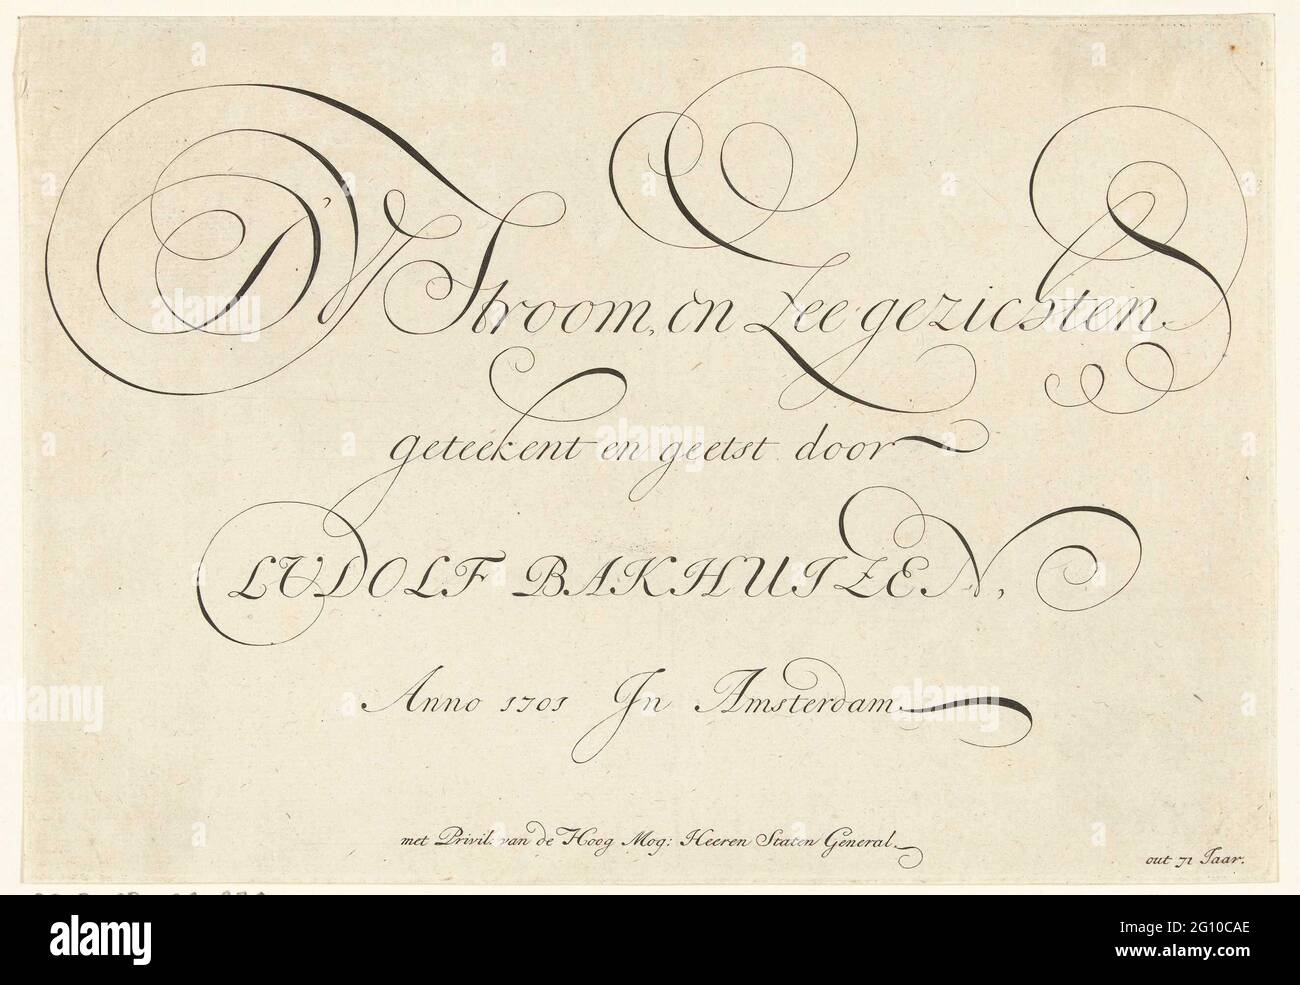 D'Y Stroom, en Zee gezichten
geteekent en geetst door
LUDOLF BAKHUIZEN,
Anno 1701 In Amsterdam
met Privil: van de Hoog Mog: Heeren Staten General.
out 71 Jaar.
alamy
Image ID: 2G10CAE
www.alamy.com